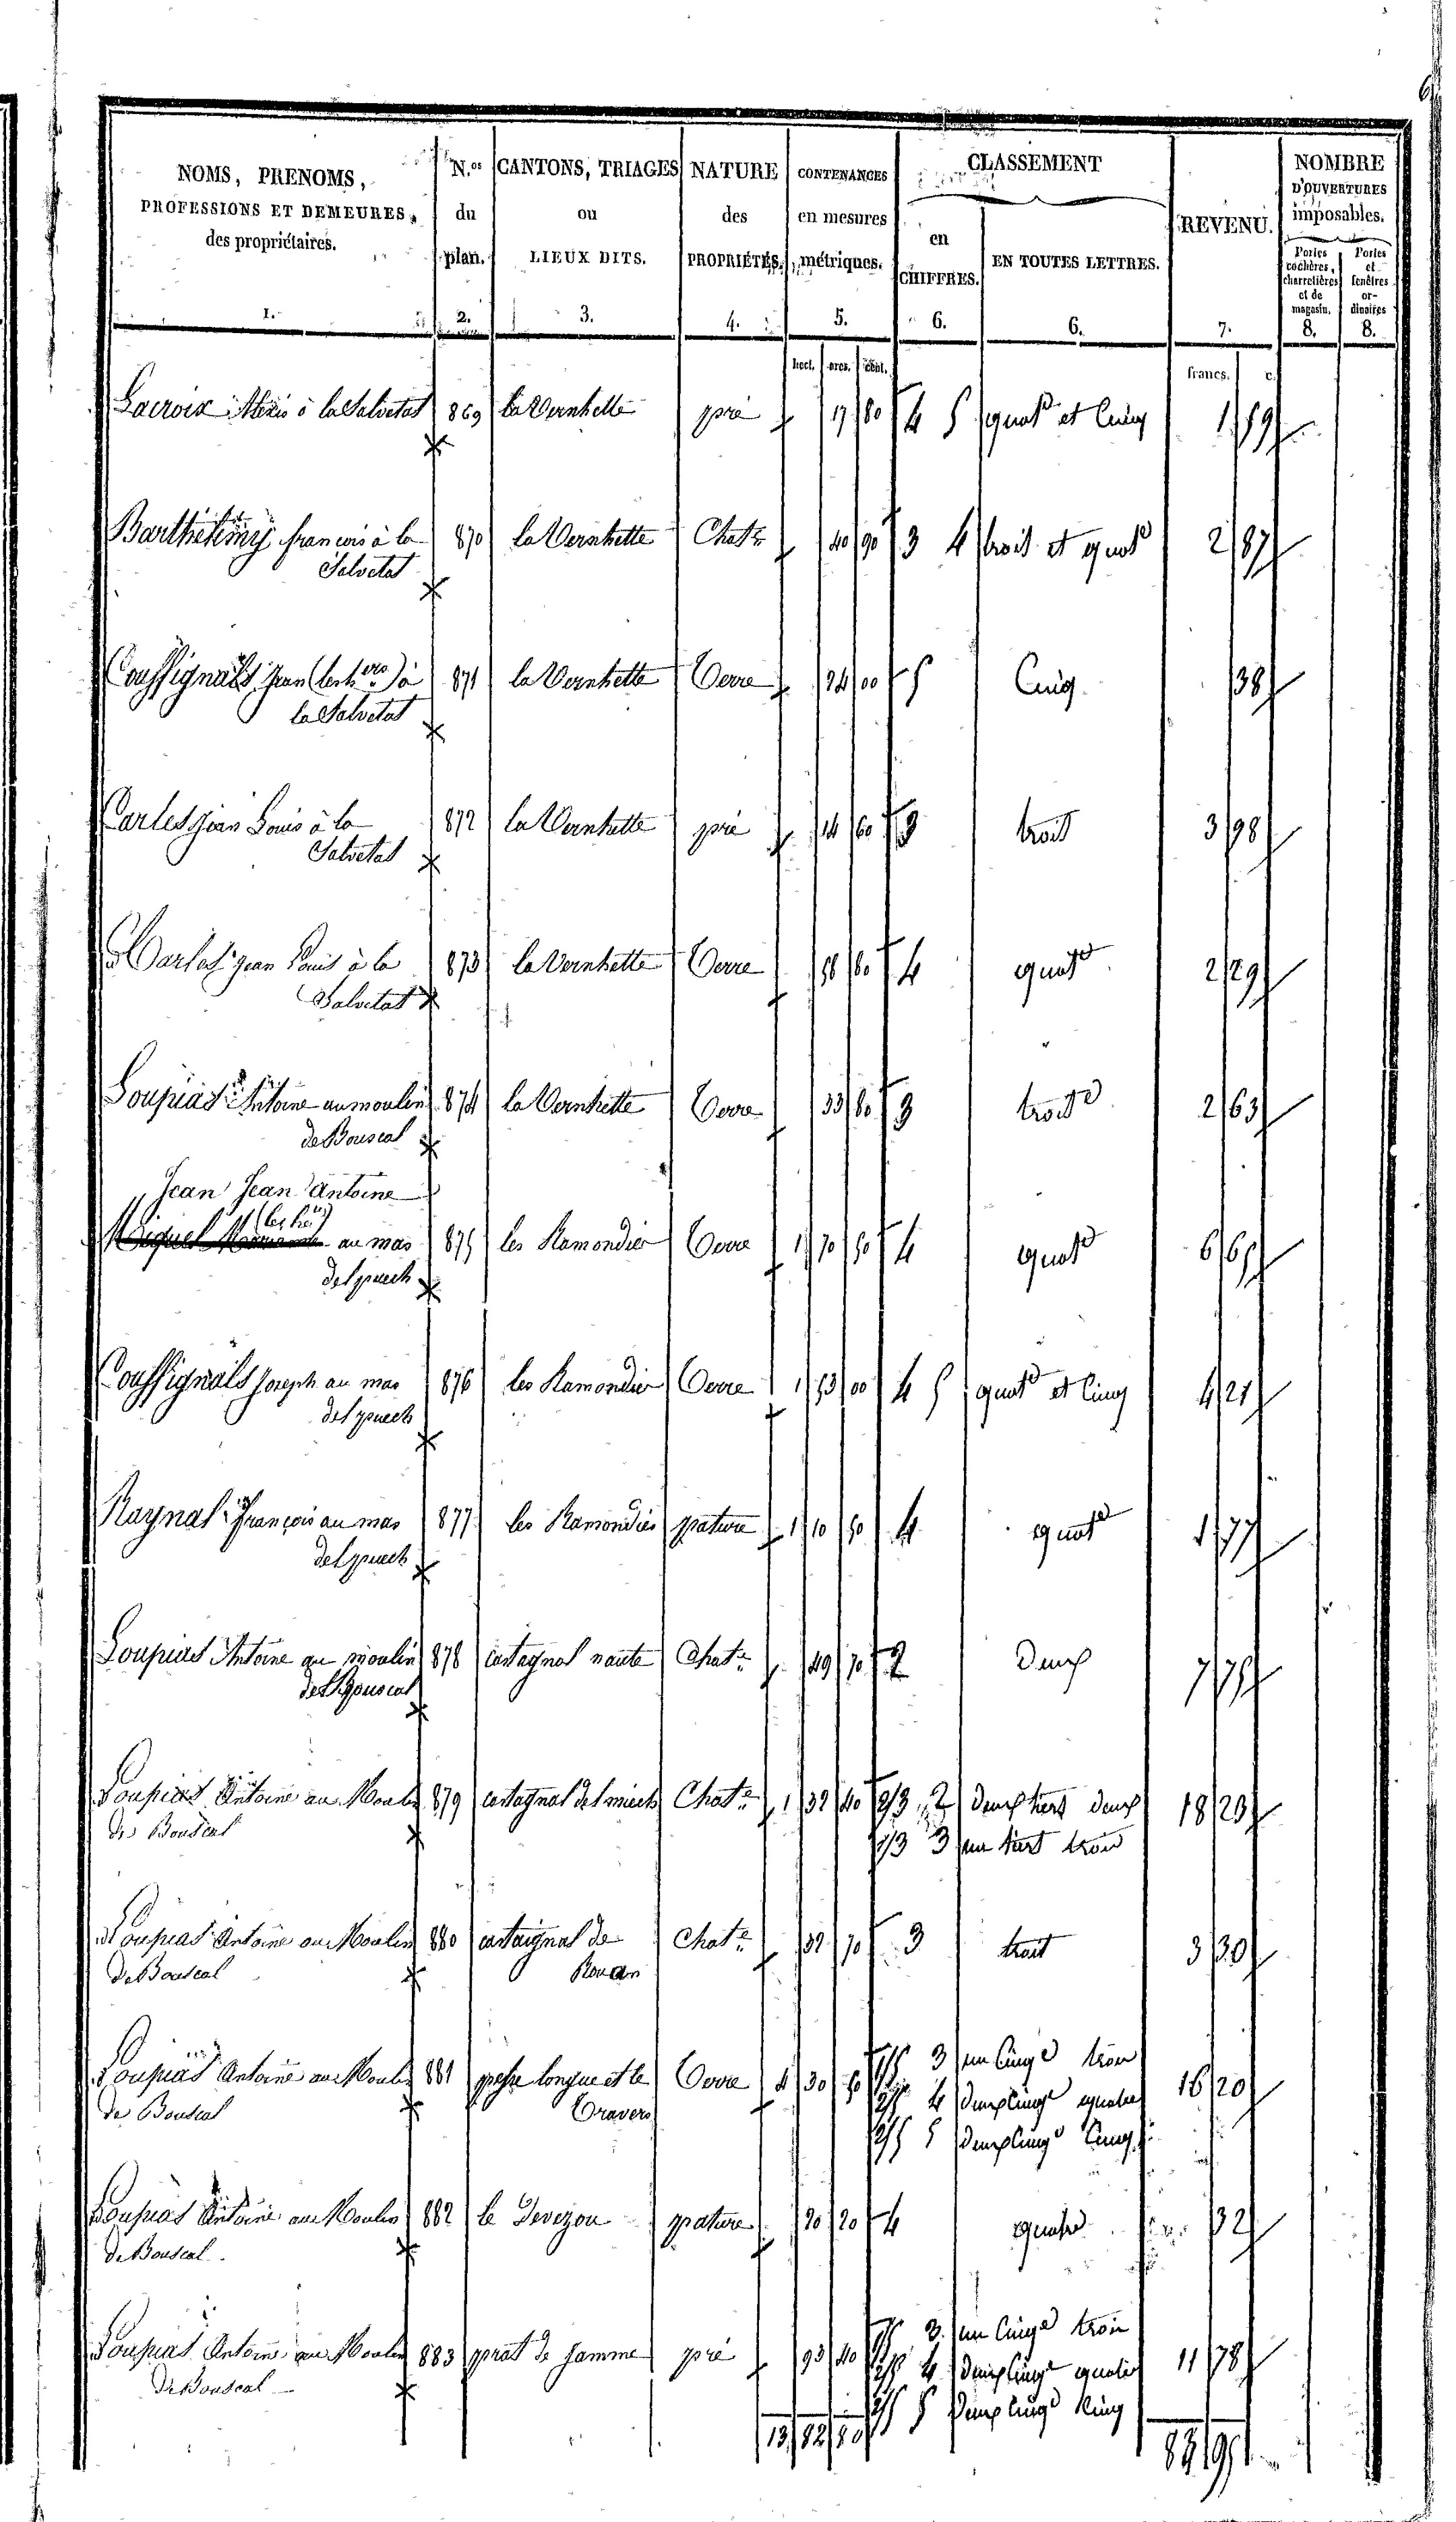 NOMS, PRENOMS, PROFESSIONS ET DEMEURES, des propriétaires. 1.
N.os du plan. 2.
CANTONS, TRIAGES ou LIEUX DITS. 3.
NATURE des PROPRIÉTÉS. 4.
CONTENANCES en mesures métriques. 5.
CLASSEMENT
en CHIFFRES. 6.
EN TOUTES LETTRES. 6.
REVENU. 7.
NOMBRE D'OUVERTURES imposables.
Portes cochères, charretières et de magasin. 8.
Portes et fenêtres ordinaires 8.
hect. ares. cent. francs. c.
Lacroix Alexis à la Salvetat 869 la Vernhette pré 17 80 4 5 quat^e et Cinq 1 59
Barthélémy françois à la 870 la Vernhette Chat^e 40 90 3 4 trois et quat^e 2 87
Salvetat
Couffignals Jean (les h^ers) à 871 la Vernhette Terre 24 00 5 Cinq 38
la Salvetat
Carles Jean Louis à la 872 la Vernhette pré 14 60 3 trois 3 98
Salvetat
Carles Jean Louis à la 873 la Vernhette Terre 58 80 4 quat^e 2 29
Salvetat
Loupias Antoine au moulin 874 la Vernhette Terre 33 80 3 trois 2 63
de Bouscal
Jean Jean Antoine
(les h^ers)
Miquel au mas 875 les Ramondies Terre 1 70 50 4 quat^e 6 65
del puech
Couffignals Joseph au mas 876 les Ramondies Terre 1 53 00 4 5 quat^e et Cinq 4 21
del puech
Raynal François au mas 877 les Ramondies pature 1 10 50 4 quat^e 1 77
del puech
Loupias Antoine au moulin 878 castagnal naute Chat^e 49 70 2 Deux 7 75
del Bouscal
Loupias Antoine au Moulin 879 castagnal del miech Chat^e 1 32 40 2/3 2 deux tiers deux 18 23
de Bouscal 1/3 3 un tiers trois
Loupias Antoine au Moulin 880 castaignal de Chat^e 32 70 3 trois 3 30
de Bouscal Rouan
Loupias Antoine au Moulin 881 pesse longue et le Terre 4 30 50 1/5 3 un Cinq^e trois 16 20
de Bouscal Travers 2/5 4 deux Cinq^e quatre
2/5 5 deux Cinq^e Cinq
Loupias Antoine au Moulin 882 le Devezou pature 20 20 4 quatre 32
de Bouscal
Loupias Antoine au Moulin 883 prat de Jamme pré 93 40 1/5 3 un Cinq^e trois 11 78
de Bouscal 2/5 4 deux Cinq^e quatre
2/5 5 Deux Cinq^e Cinq
13 82 80 83 95